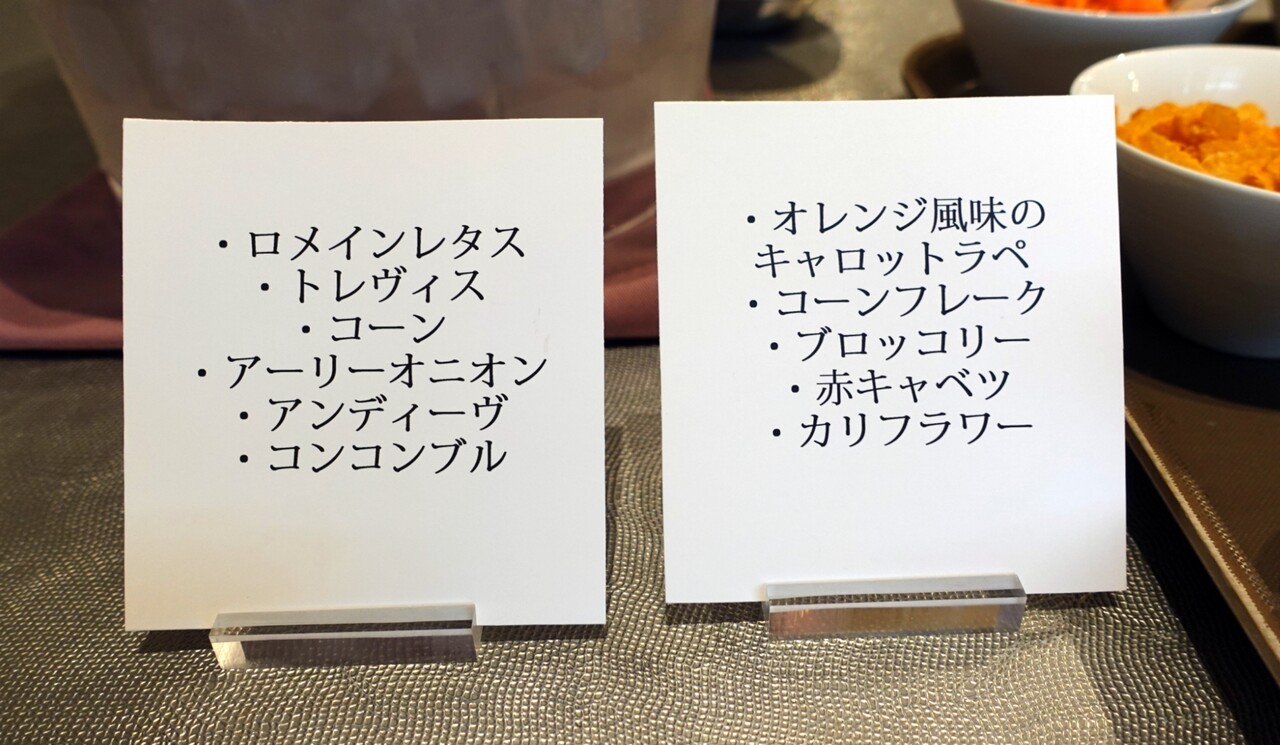 ・ロメインレタス
・トレヴィス
・コーン
・アーリーオニオン
・アンディーヴ
・コンコンブル
・オレンジ風味の
キャロットラペ
・コーンフレーク
・ブロッコリー
・赤キャベツ
・カリフラワー